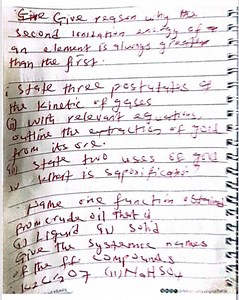 Give Give reason why the
second ionization energy of
an element is always greater
than the first.
i State three postulates of
the kinetic of gases
(ii) with relevant equations,
outline the extraction of gold
from its ore.
(iii) state two uses of gold
iv What is saponification?
Name one function obtained
from crude oil that is
(i) Liquid (ii) Solid
Give the systemic names
of the ff compounds
(ii) NaHSO4